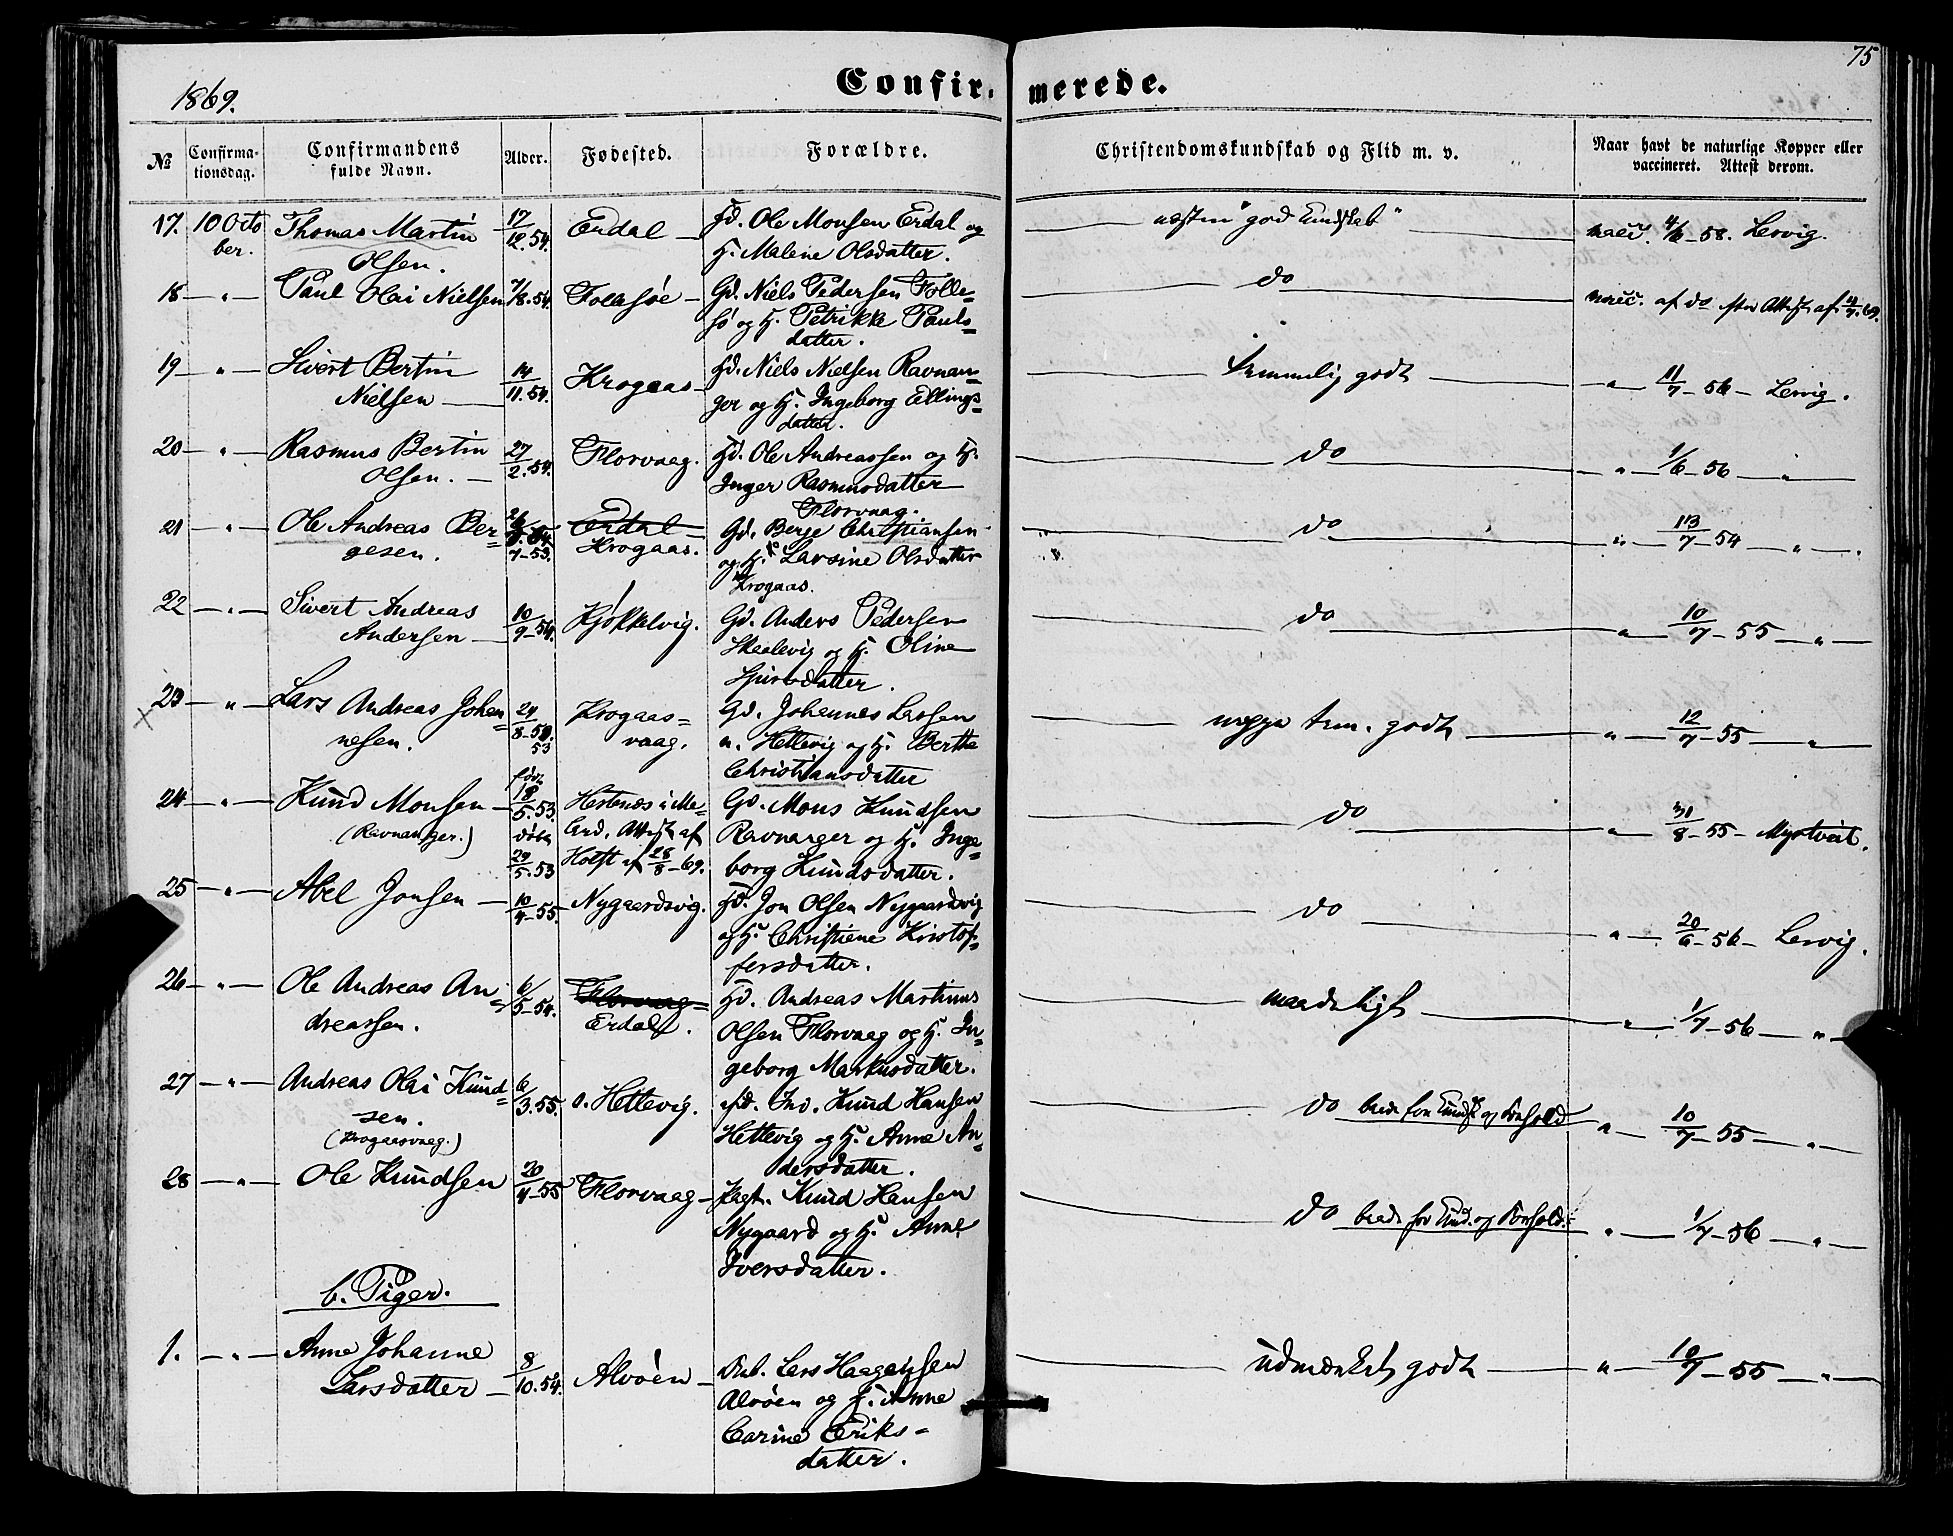 75
1869.
Confir- merede.
№
Confirma-
tionsdag.
Confirmandens
fulde Navn.
Alder.
Fødested.
Forældre.
Christendomskundskab og Flid m. v.
Naar havt de naturlige Kopper eller
vaccineret. Attest derom.
17. 10 Octo
ber.
Thomas Martin
Olsen.
17/12.54.
Erdal
Fd. Ole Monsen Erdal og
H. Malene Olsdatter.
næsten "god Kundskab"
vacc. 4/6-58. Lervig.
18 — " — Paul Olai Nielsen
7/8.54.
Follesøe
Gd. Niels Pedersen Folle=
sø og H. Petrikke Pauls=
datter.
do
vacc. af do efter Attest af 4/7.69.
19 — " — Sivert Bertin
Nielsen
14/11.54.
Krogaas
Fd. Niels Nielsen Ravnan=
ger og H. Ingeborg Ellings=
datter.
temmelig godt
" — 11/7-56 — Lervig.
20 — " — Rasmus Bertin
Olsen.
27/2.54.
Florvaag.
Fd. Ole Andreassen og H.
Inger Rasmusdatter
Florvaag.
do
" — 1/6-56 — "
21 — " — Ole Andreas Ber=
gesen.
26/7-53.
Erdal
Krogaas.
Gd. Berge Christiansen
og H. Larsine Olsdatter
Krogaas.
do
" — 13/7-54 — "
22 — " — Sivert Andreas
Andersen
10/9-54.
Kjøkkelvig.
Gd. Anders Pedersen
Skaalevig og H. Oline
Sjursdatter.
do
" — 10/7-55 — "
23 — " — Lars Andreas Johan=
nesen.
×
24/8-53
Krogaas=
vaag.
Gd. Johannes Larsen
n. Hettevig og H. Berthe
Christiansdatter
neppe tem. godt
" — 12/7-55 — "
24 — " — Knud Monsen
(Ravnanger.)
fød.
18/5.53.
døbt
29/5.53
Hestenes i Me=
land. Attest af
Holst af 28/8-69.
Gd. Mons Knudsen
Ravnanger og H. Inge=
borg Knudsdatter.
do
" — 31/8-55 — Myrtveit.
25 — " — Abel Jonsen
10/4-55.
Nygaardsvig.
Fd. Jon Olsen Nygaardsvig
og H. Christiene Kristof=
fersdatter.
do
" — 20/6-56 — Lervig.
26 — " — Ole Andreas An=
dreassen.
6/5-54.
Florvaag
Erdal.
Fd. Andreas Martinus
Olsen Florvaag og H. In=
geborg Markusdatter.
maadeligt
" — 1/7-56 — "
27 — " — Andreas Olai Knud=
sen.
(Krogaasvaag.)
6/3.55.
Hettevig.
Ind. Knud Hansen
Hettevig og H. Anne An=
dersdatter.
do
" — 10/7-55 — "
28 — " — Ole Knudsen
20/4-55
Florvaag
Knud Hansen
Nygaard og H. Anne
Iversdatter.
do
" — 1/7-56 — "
b. Piger.
1. — " — Anne Johanne
Larsdatter
8/10.54.
Alvöen
Lars Haagensen
Alvöen og H. Anne
Carine Eriks=
datter.
udmærket godt
" — 10/7-55 — "